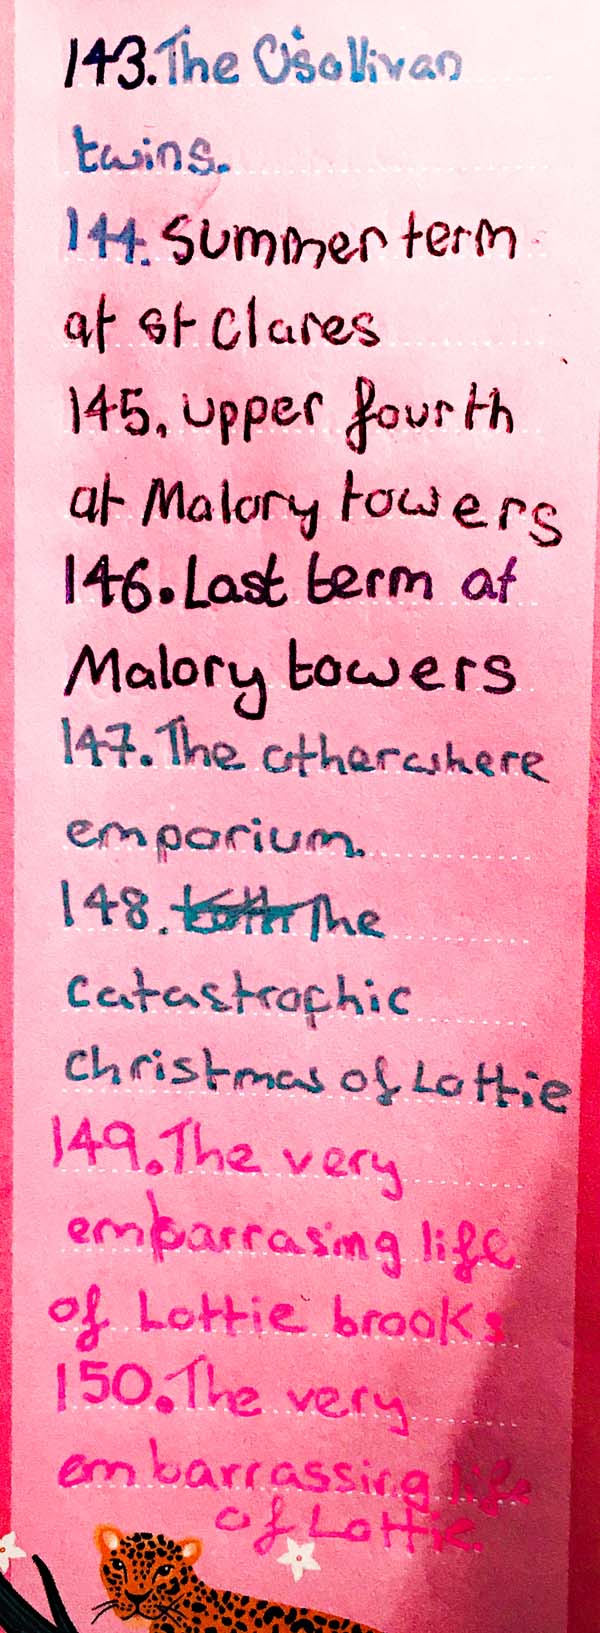 143. The O'sollivan
twins.
144. Summer term
at st Clares
145. upper fourth
at Malory towers
146. Last term at
Malory towers
147. The otherwhere
emporium.
148. The
catastrophic
christmas of Lottie
149. The very
embarrasing life
of Lottie brooks
150. The very
embarrassing life
of Lottie